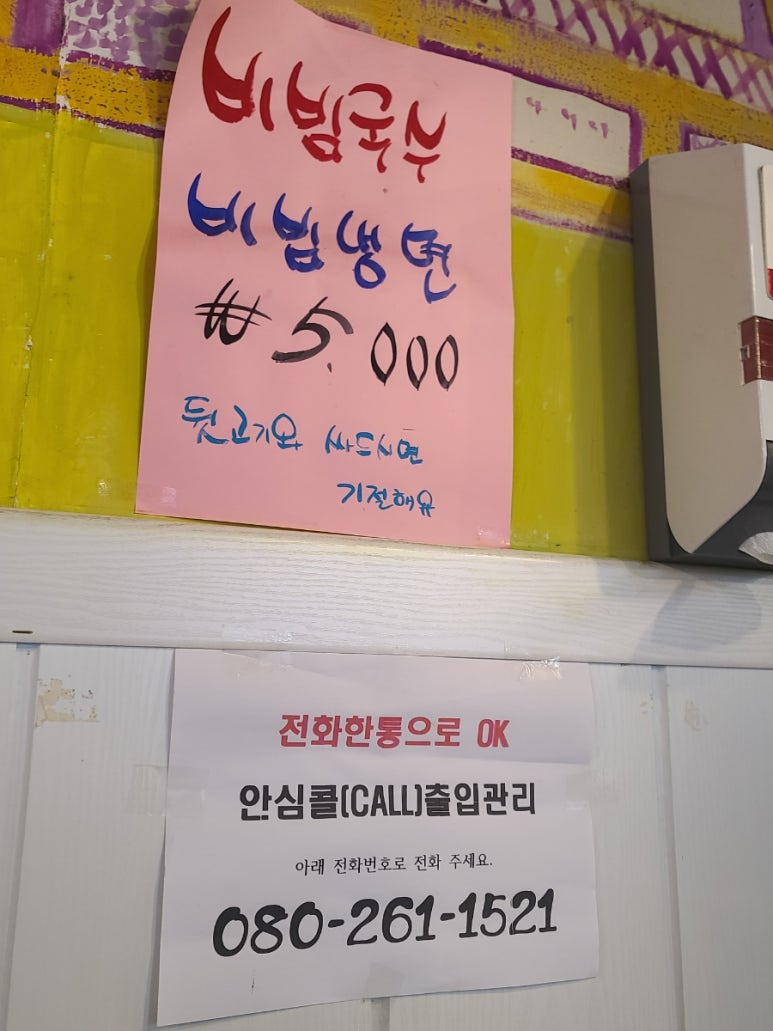 비빔국수
비빔냉면
₩ 5.000
뒷고기와 싸드시면
기절해요
전화한통으로 OK
안심콜(CALL)출입관리
아래 전화번호로 전화 주세요.
080-261-1521